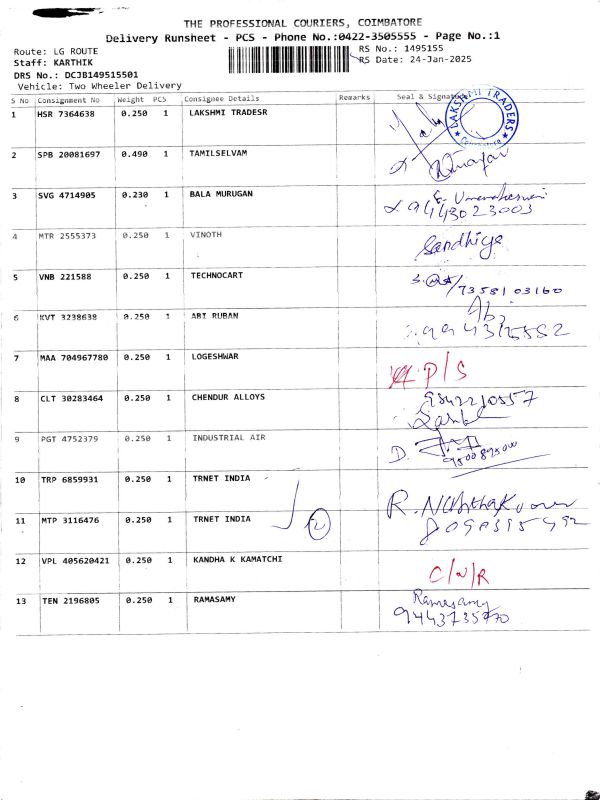 THE PROFESSIONAL COURIERS, COIMBATORE
Delivery Runsheet - PCS - Phone No.:0422-3505555 - Page No.:1
Route: LG ROUTE
RS No.: 1495155
Staff: KARTHIK
RS Date: 24-Jan-2025
DRS No.: DCJB149515501
Vehicle: Two Wheeler Delivery
S No Consignment No Weight PCS Consignee Details Remarks Seal & Signature
LAKSHMI TRADERS
Coimbatore
1 HSR 7364638 0.250 1 LAKSHMI TRADESR
2 SPB 20081697 0.490 1 TAMILSELVAM
3 SVG 4714905 0.230 1 BALA MURUGAN
9443023003
4 MTR 2555373 0.250 1 VINOTH Sandhiya
5 VNB 221588 0.250 1 TECHNOCART
7358103160
6 KVT 3238638 0.250 1 ABI RUBAN Abi
7 MAA 704967780 0.250 1 LOGESHWAR P/S
8 CLT 30283464 0.250 1 CHENDUR ALLOYS 9842210557
9 PGT 4752379 0.250 1 INDUSTRIAL AIR D.
10 TRP 6859931 0.250 1 TRNET INDIA
11 MTP 3116476 0.250 1 TRNET INDIA 2 R.
12 VPL 405620421 0.250 1 KANDHA K KAMATCHI C/N/R
13 TEN 2196805 0.250 1 RAMASAMY Ramesamy
9443735770